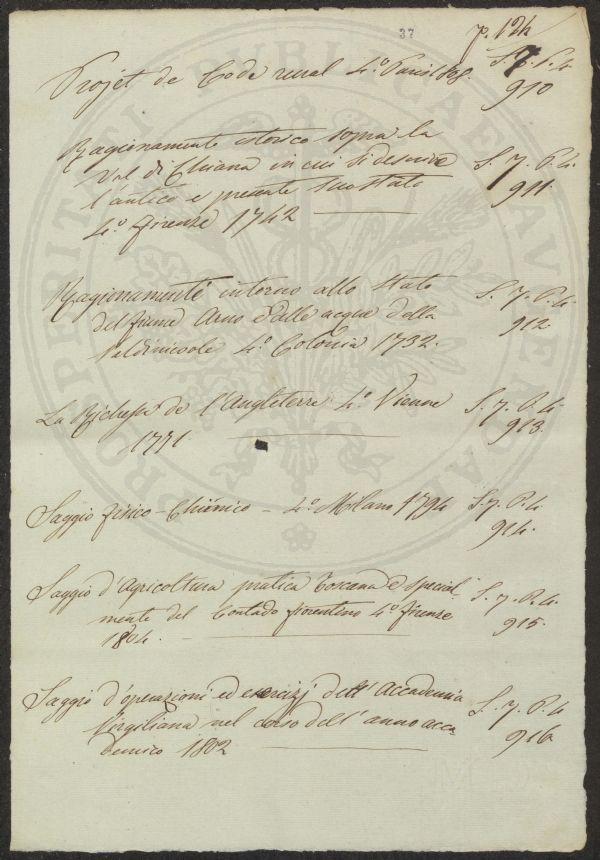 37
p. 124
Projet de Code rural 4.º Paris 1808. S. 7. P. 4
910
Ragionamento istorico sopra la
Val di Chiana in cui si descrive S. 7. P. 4.
l'antico e presente suo stato 911.
4.º Firenze 1742
Ragionamento intorno allo stato S. 7. P. 4.
del fiume Arno e dell' acque della 912.
Valdinievole 4.º Colonia 1732.
La Richesse de l'Angleterre 4.º Vienne S. 7. P. 4.
1771. 913.
Saggio fisico-Chimico - 4.º Milano 1794 S. 7. P. 4
914.
Saggio d'Agricoltura pratica Toscana e special- S. 7. P. 4.
mente del Contado fiorentino 4.º Firenze 915.
1804.
Saggio d'operazioni ed esercizj dell' Accademia S. 7. P. 4
Virgiliana nel corso dell' anno acca 916
demico 1802
PROSPERITATI PUBLICAE AUGENDAE